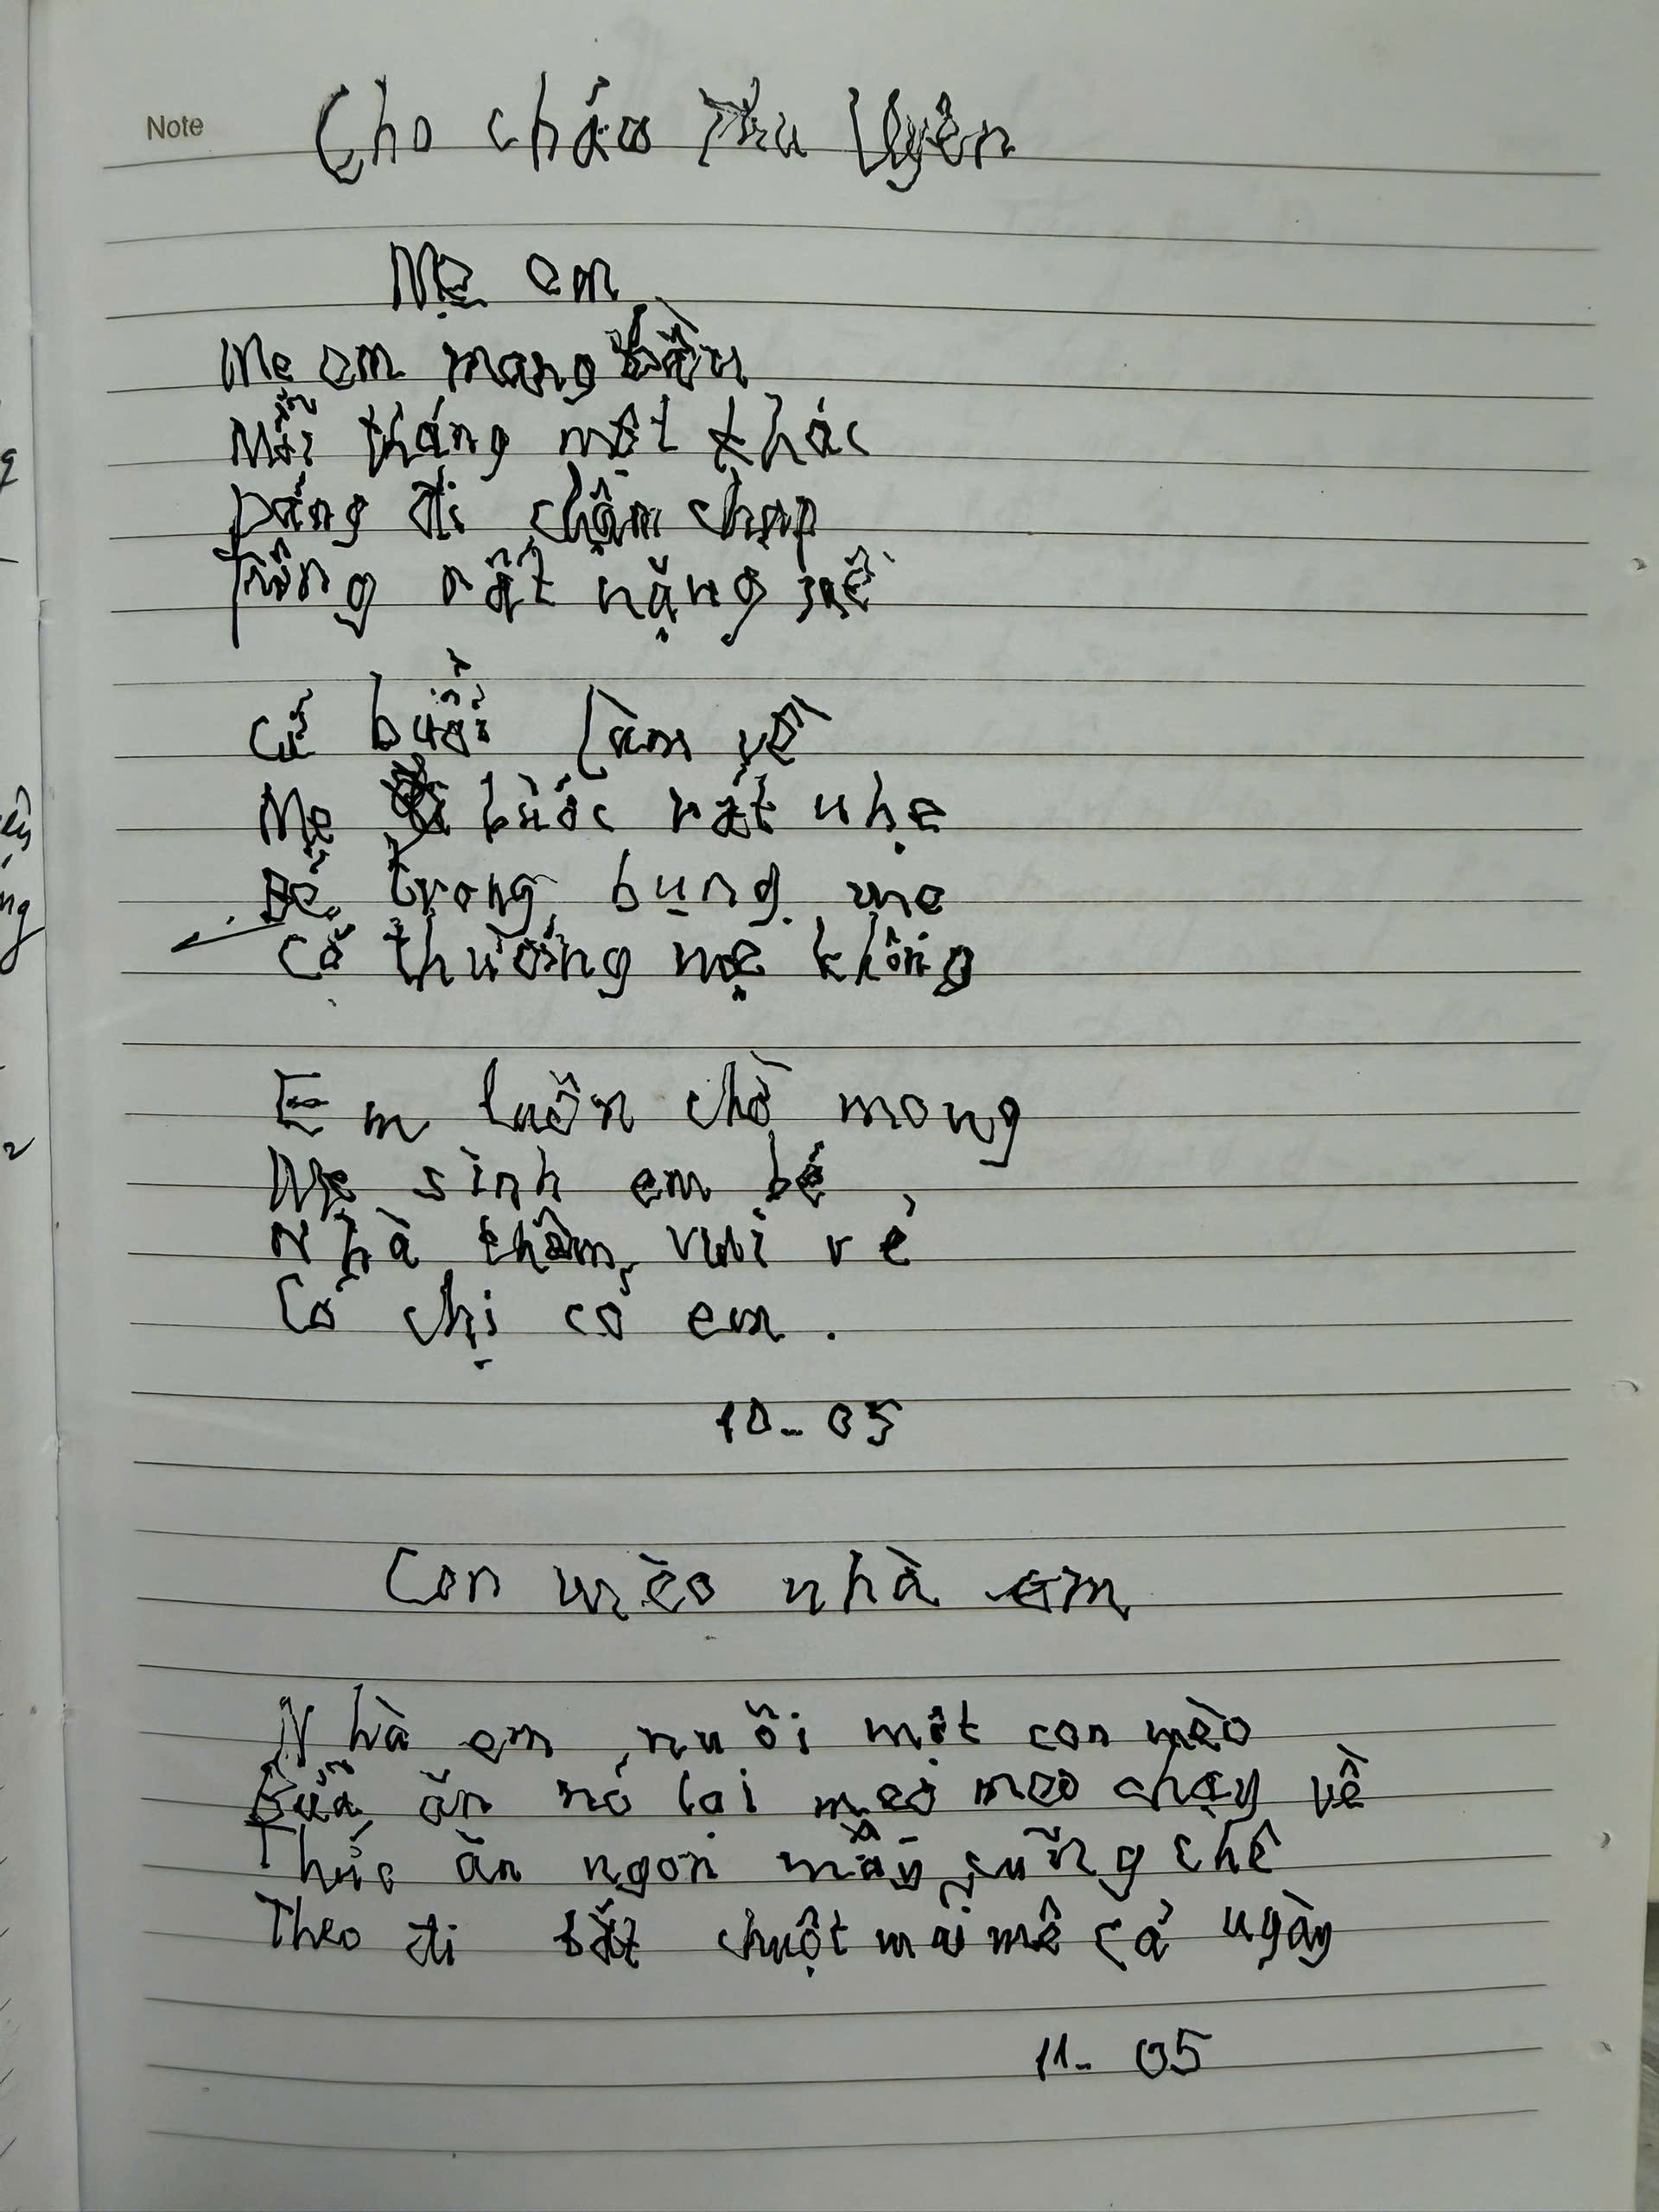 Note
Cho cháu Thu Uyên
Mẹ em
Mẹ em mang bầu
Mỗi tháng một khác
Dáng đi chậm chạp
Trông rất nặng nề
Cứ buổi làm về
Mẹ bước rất nhẹ
Bé trong bụng mẹ
Có thương mẹ không
Em luôn chờ mong
Mẹ sinh em bé
Nhà thêm vui vẻ
Có chị có em.
10-05
Con mèo nhà em
Nhà em nuôi một con mèo
Bữa ăn nó lại meo meo chạy về
Thức ăn ngon mấy cũng chê
Theo đi bắt chuột mải mê cả ngày
11-05